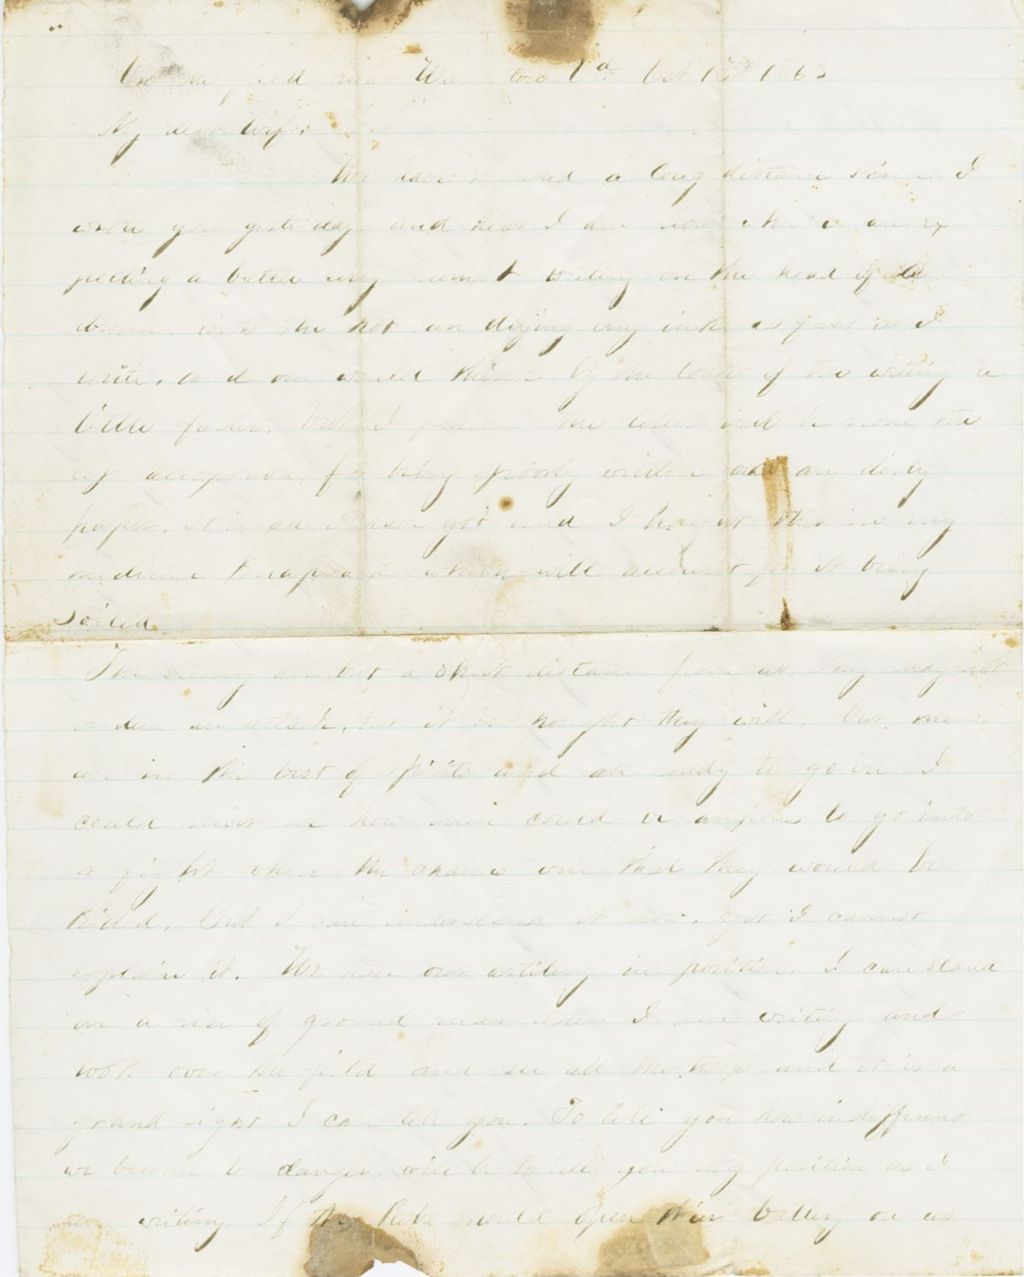 In the field near Warrenton Va Oct 13th 1863
My dear Wife:
We have marched a long distance since I
wrote you yesterday, and here I am now when we are ex
pecting a battle any moment writing on the head of a
drum, with the hot sun drying my ink as fast as I
write, and one would think by the looks of the writing a
little faster. But I the letter will be none the
less acceptable for being poorly written and on dirty
paper. It is all I have got and I have got this in my
medicine knapsack which will account for it being
soiled.
The enemy are but a short distance from us, they may not
make an attack, but it is thought they will. Our men
are in the best of spirits and all ready to go in. I
could never see how men could be anxious to go into
a fight when the chances were that they would be
killed. But I can understand it now, yet I cannot
explain it. We have our artillery in position. I can stand
on a rise of ground near where I am writing and
look over the field and see all the troops and it is a
grand sight I can tell you. To tell you how indifferent
we become to danger, will be to tell you my position as I
am writing. If the Rebs should open their battery on us